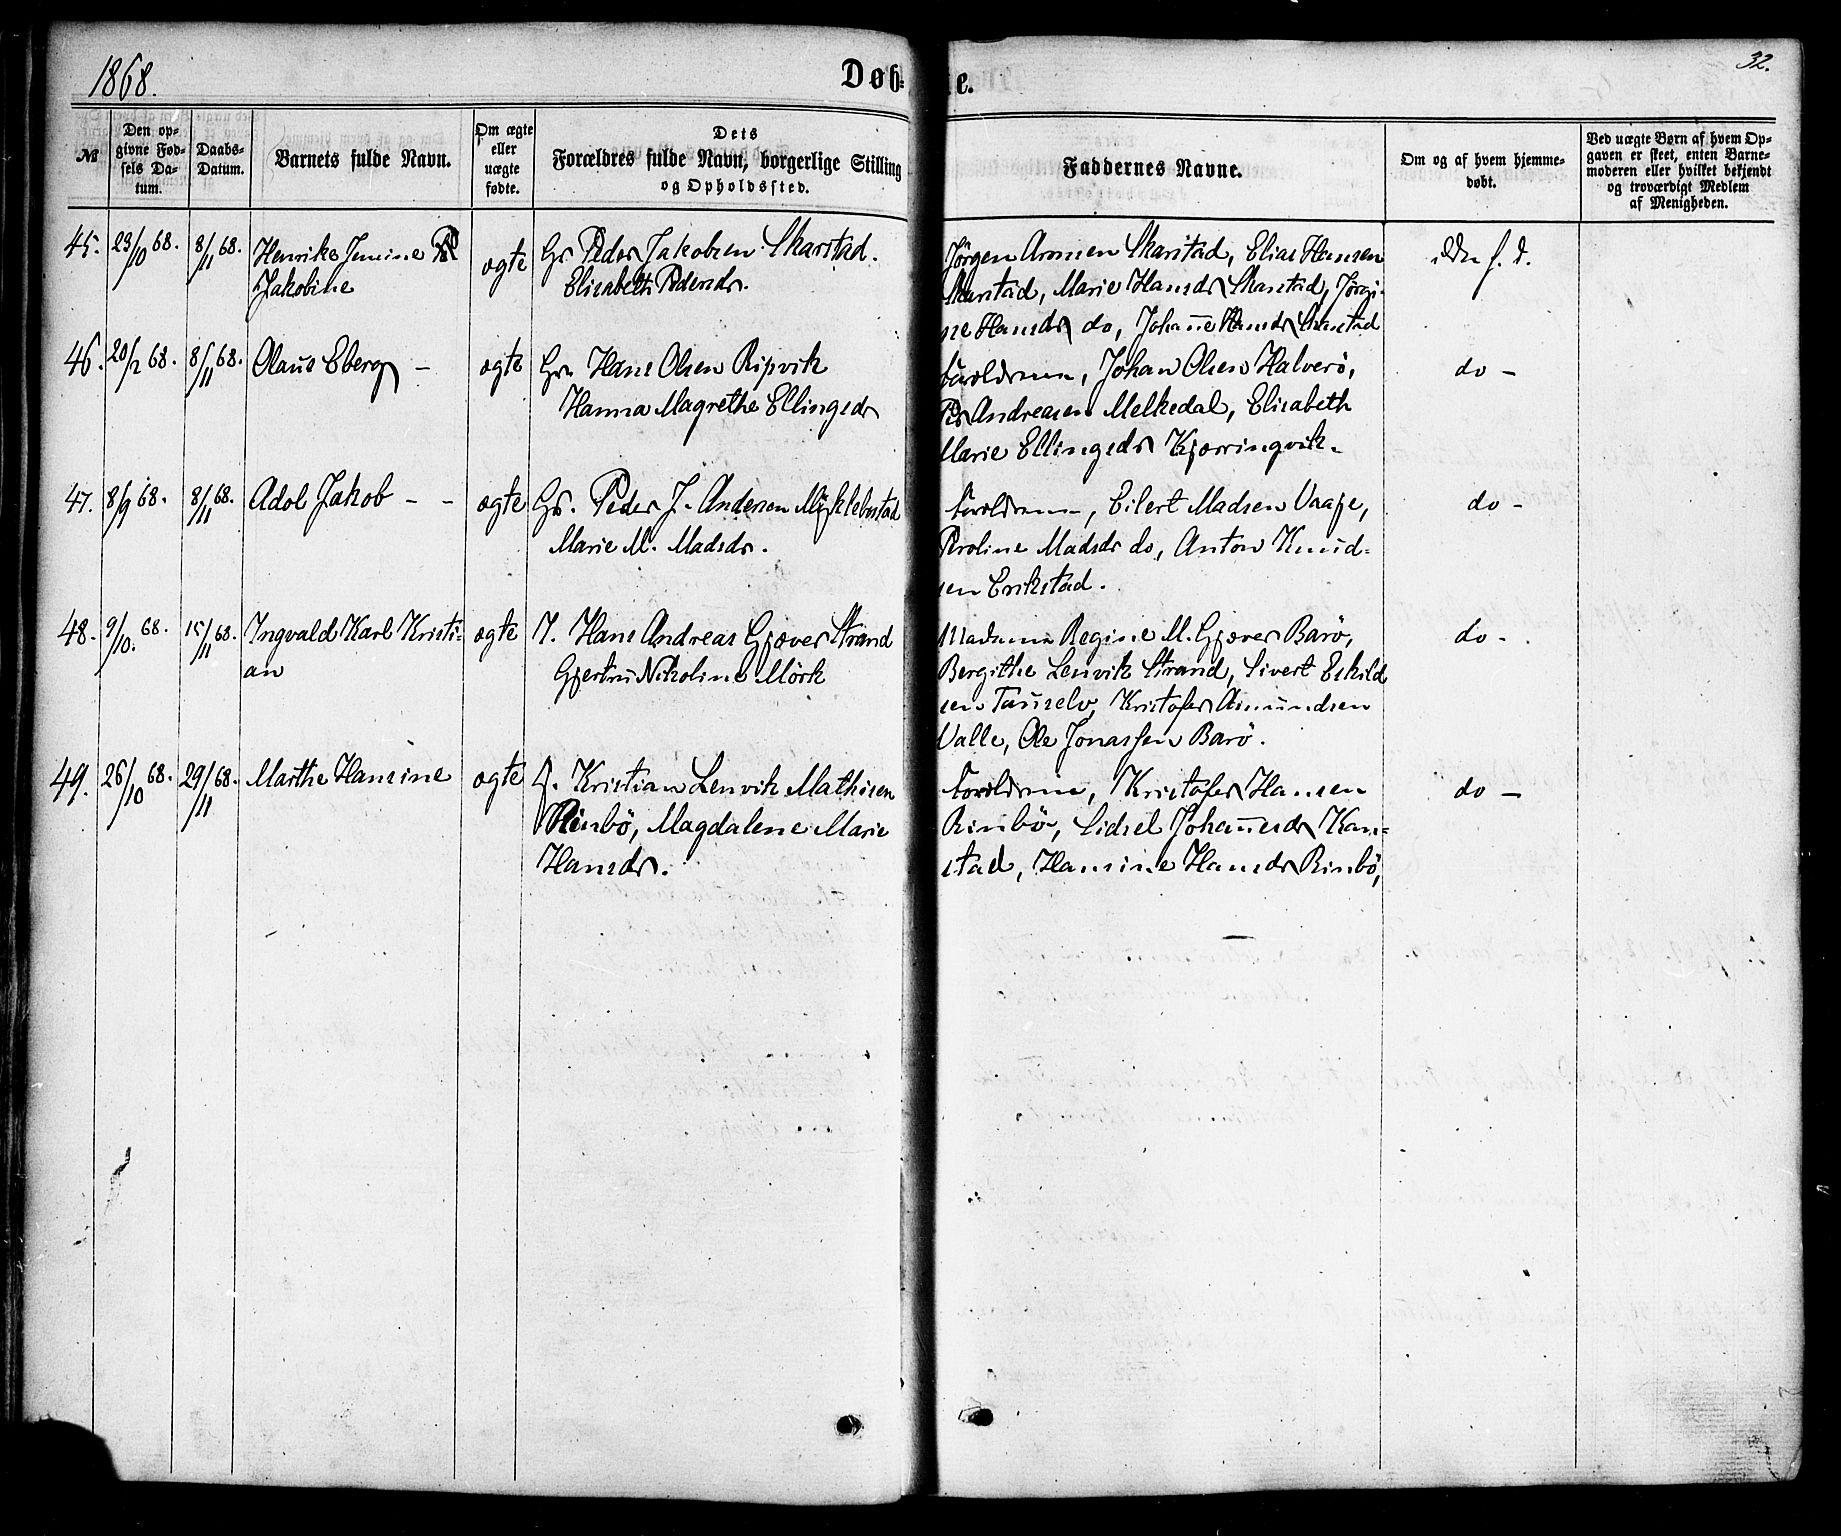 1868.
Døb-
e.
32.
№
Den op-
givne Fød-
sels Da-
tum.
Daabs-
Datum.
Barnets fulde Navn.
Om ægte
eller
uægte
fødte.
Dets
Forældres fulde Navn, borgerlige Stilling
og Opholdssted.
Faddernes Navne.
Om og af hvem hjemme-
døbt.
Ved uægte Børn af hvem Op-
gaven er skeet, enten Barne-
moderen eller hvilket bekjendt
og troværdigt Medlem
af Menigheden.
45. 23/10 68. 8/11 68. Henrike Jemine
Jakobine
ægte
Gr Peder Jakobsen Skarstad.
Elisabeth Pedersdr.
Jörgen Aronsen Skarstad, Elias Hansen
Skarstad, Marie Hansdr Skarstad, Jörgi-
ne Hansdr do, Johanne Hansdr Skarstad
46. 20/2 68. 8/11 68. Olaus Eberg –
ægte
Gr. Hans Olsen Ripvik
Hanna Magrethe Ellingsdr
Forældrene, Johan Olsen Halverö,
Andreasen Melkedal, Elisabeth
Marie Ellingsdr Kjærringvik.
do –
47. 8/9 68. 8/11 68. Adol Jakob – –
ægte
Gr. Peder J. Andersen Myklebostad
Marie M. Madsdr.
Forældrene, Eilert Madsen
Madsdr do, Anton Knud-
sen Erikstad.
do –
48. 9/10. 68. 15/11 68. Ingvald Karl Kristi-
an
ægte
Hans Andreas Gjæver Strand
Nikoline Mörk
Madame Regine M. Gjæver Barö,
Bergithe Lenvik Strand, Sivert Eskild
sen Kristofer Amundsen
Valle, Ole Jonassen Barö.
do –
49. 26/10 68. 29/11 68. Marthe Hansine
ægte
Kristian Lenvik Mathisen
Rinbö, Magdalene Marie
Hansdr.
Forældrene, Kristofer Hansen
Rinbö, Sidsel Johannesdr Kan-
stad, Hansine Hansdr Rinbö,
do –